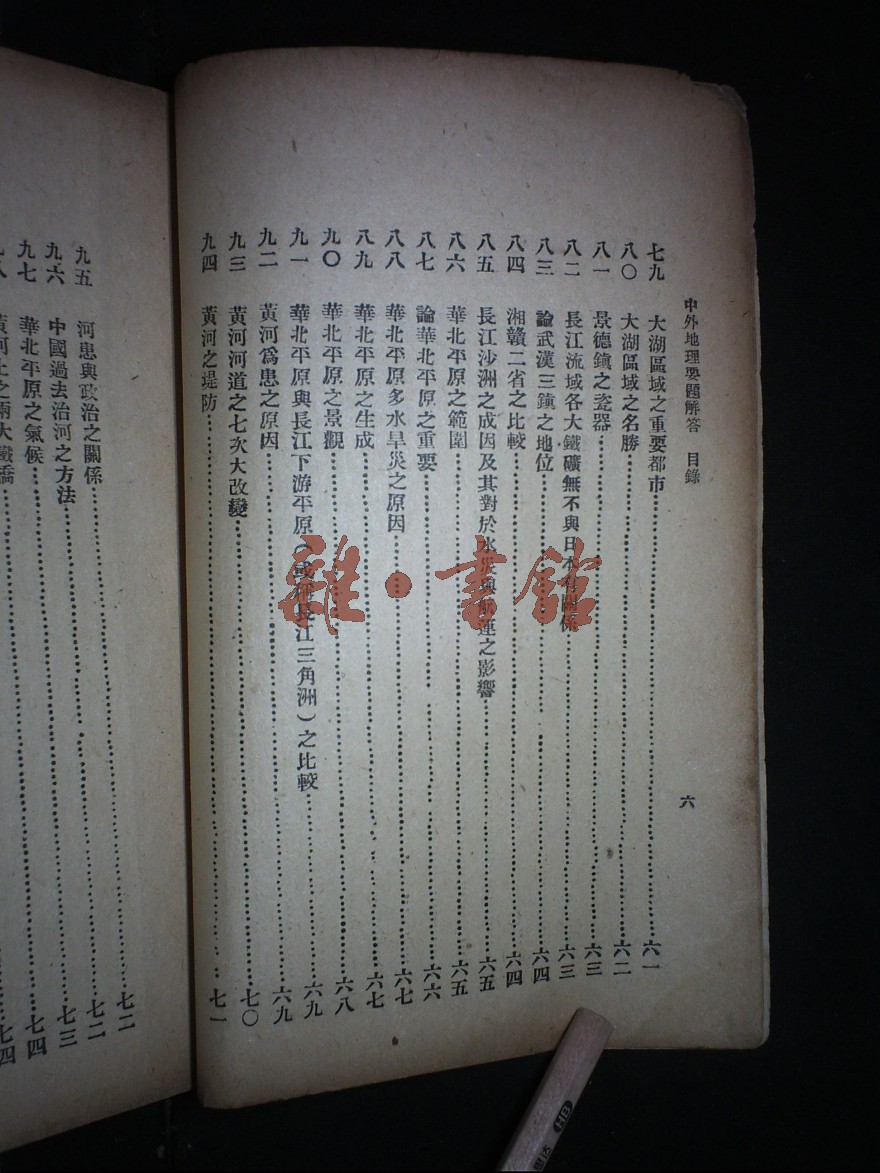 中外地理要題解答 目錄 六
七九 大湖區域之重要都市 六一
八〇 大湖區域之名勝 六二
八一 景德鎮之瓷器 六三
八二 長江流域各大鐵礦無不與日本有關係 六三
八三 論武漢三鎮之地位 六四
八四 湘贛二省之比較 六四
八五 長江沙洲之成因及其對於水災與航運之影響 六五
八六 華北平原之範圍 六五
八七 論華北平原之重要 六六
八八 華北平原多水旱災之原因 六七
八九 華北平原之生成 六七
九〇 華北平原之景觀 六八
九一 華北平原與長江下游平原（或稱長江三角洲）之比較 六九
九二 黃河爲患之原因 六九
九三 黃河河道之七次大改變 七〇
九四 黃河之堤防 七一
九五 河患與政治之關係 七二
九六 中國過去治河之方法 七二
九七 華北平原之氣候 七三
九八 黃河上之兩大鐵橋 七四
七四
雜·書館
HB